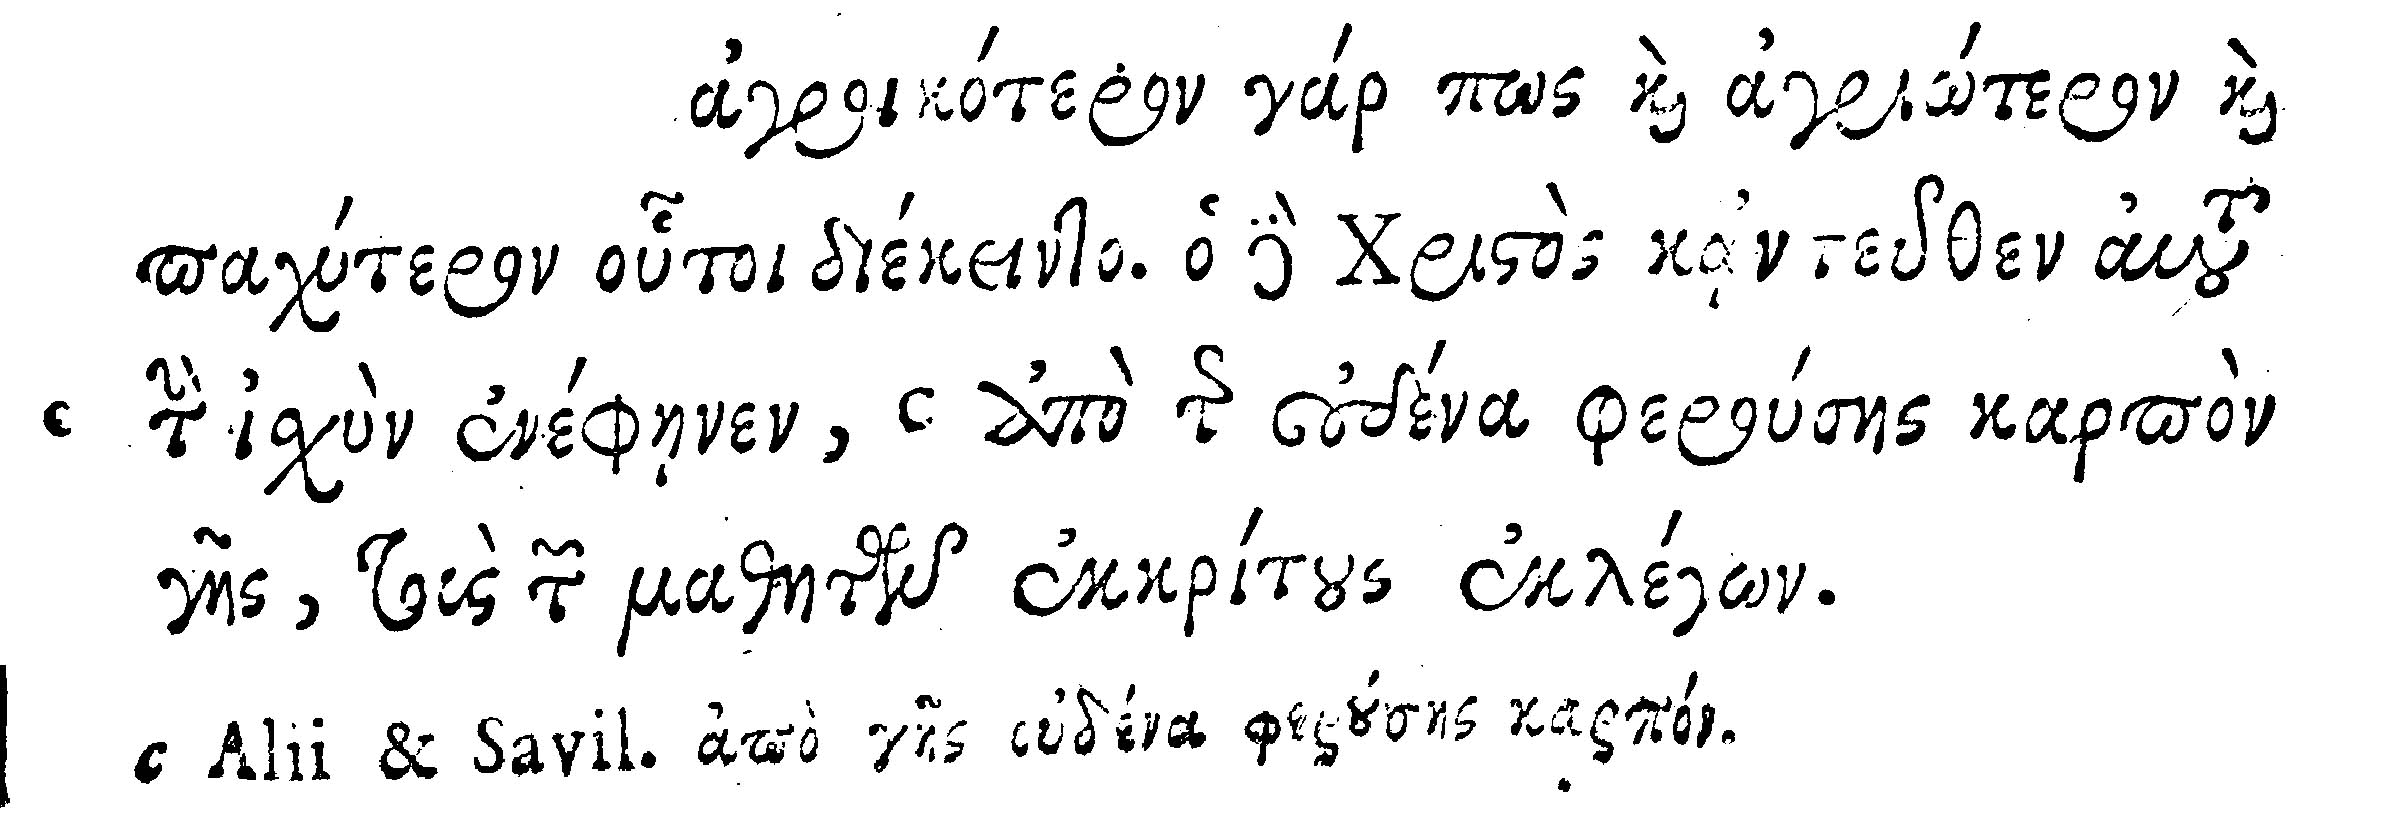 ἀγροικότερον γάρ πως καὶ ἀγριώτερον καὶ
παχύτερον οὗτοι διέκειντο. ὁ δὲ Χριστὸς κᾀντεῦθεν αὐτοῦ
τὴν ἰσχὺν ἐνέφῃνεν, c ἀπὸ τῆς οὐδένα φερούσης καρπὸν
c
γῆς, τοὺς τῶν μαθητῶν ἐκκρίτους ἐκλέγων.
c Alii & Savil. ἀπὸ γῆς οὐδένα φερούσης καρπόν.